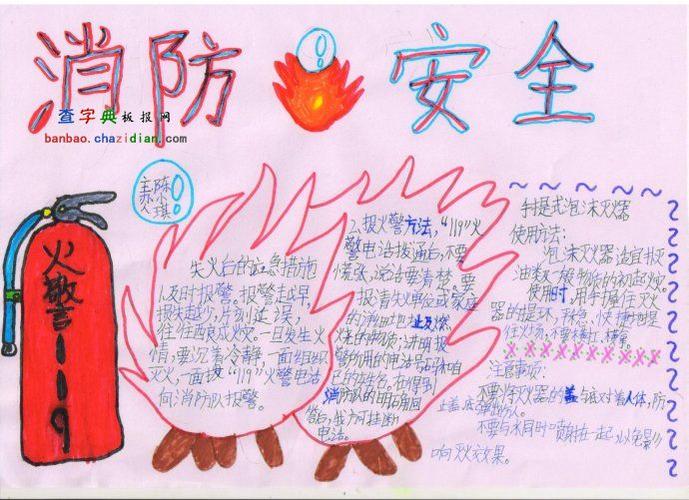 消防安全
查字典板报网
banbao.chazidian.com
火警119
失火后的应急措施
1.及时报警。报警越早,
损失越少,片刻延误,
往往酿成火灾。一旦发生火
情,要沉着冷静,一面组织
灭火,一面拨“119”火警电话
向消防队报警。
2.报火警方法,“119”火
警电话拨通后,不要
慌张,说话要清楚。要
报清失火单位或家庭
的详细地址及燃
烧的物质;讲明报
警所用的电话号码和自
己的姓名。在得到
消防队的明确回
答后,我方可挂断
电话。
手提式泡沫灭火器
使用方法:
泡沫灭火器适宜扑灭
油类及一般物质的初起火灾。
使用时,用手握住灭火
器的提环,平稳、快捷地提
往火场,不要横扛、横拿。
注意事项:
不要将灭火器的盖与底对着人体,防
止盖底弹出伤人。
不要与水同时喷射在一起,以免影
响灭火效果。